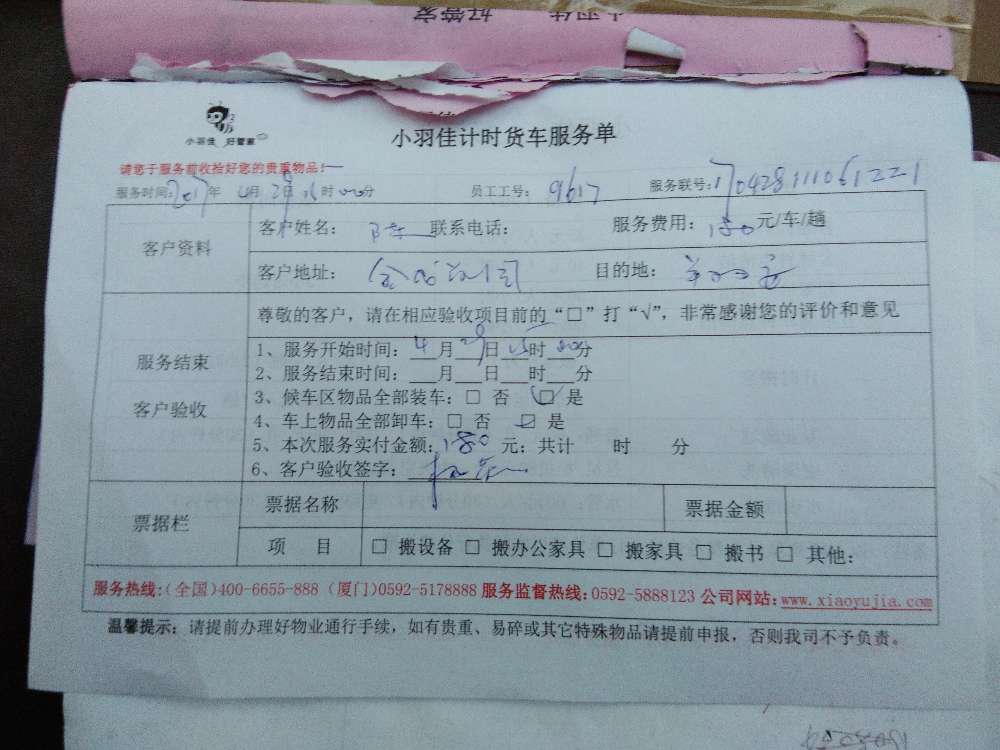 好管家
小羽佳 好管家
小羽佳计时货车服务单
请您于服务前收拾好您的贵重物品!
服务时间:2017年4月28日 时00分 员工工号: 9617 服务联号:170428111061221
客户资料
客户姓名: 陈 联系电话: 服务费用:180元/车/趟
客户地址: 目的地:
尊敬的客户,请在相应验收项目前的“□”打“√”,非常感谢您的评价和意见
服务结束
客户验收
1、服务开始时间:4月29日15时00分
2、服务结束时间:___月___日___时___分
3、候车区物品全部装车:□ 否 ☑ 是
4、车上物品全部卸车:□ 否 ☑ 是
5、本次服务实付金额:180元;共计 时 分
6、客户验收签字:
票据栏
票据名称 票据金额
项 目 □ 搬设备 □ 搬办公家具 □ 搬家具 □ 搬书 □ 其他:
服务热线:(全国)400-6655-888 (厦门)0592-5178888 服务监督热线:0592-5888123 公司网站:www.xiaoyujia.com
温馨提示:请提前办理好物业通行手续,如有贵重、易碎或其它特殊物品请提前申报,否则我司不予负责。